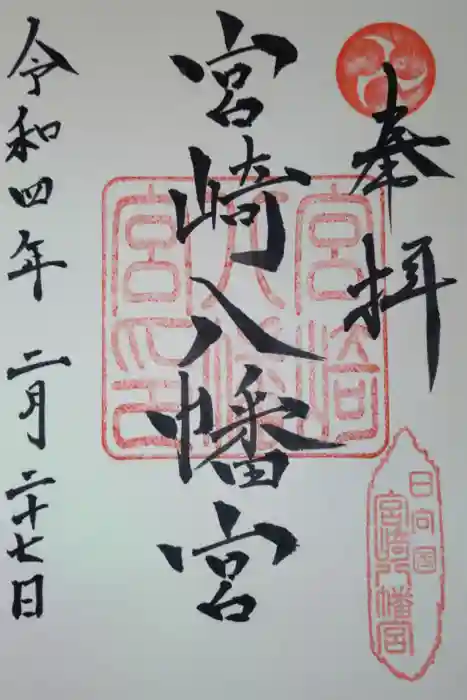 奉拝
日向国
宮崎八幡宮
宮崎八幡宮
宮崎八幡宮印
令和四年 二月 二十七日